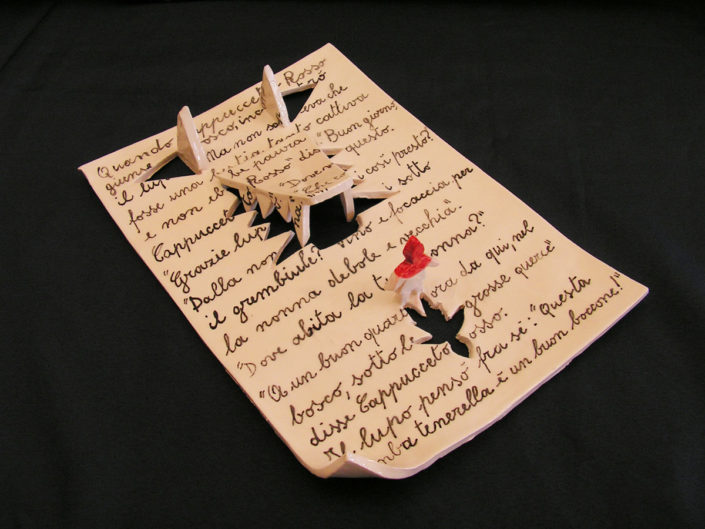 Quando appuccetto Rosso
giunse bosco, inco trò
il lup Ma non sa eva che
fosse una tia tanto cattiva
e non ebbe paura. "Buon giorno,
Cappuccetto Rosso" disse questo.
"Grazie lup "Dove così presto?"
"Dalla non i sotto
il grembiule? Vino e focaccia per
la nonna debole e vecchia".
"Dove abita la t nonna?"
"A un buon quarto ora da qui, nel
bosco, sotto le grosse querce"
disse Cappuccetto osso.
Il lupo pensò fra sé: "Questa
mba tenerella è un buon boccone!"